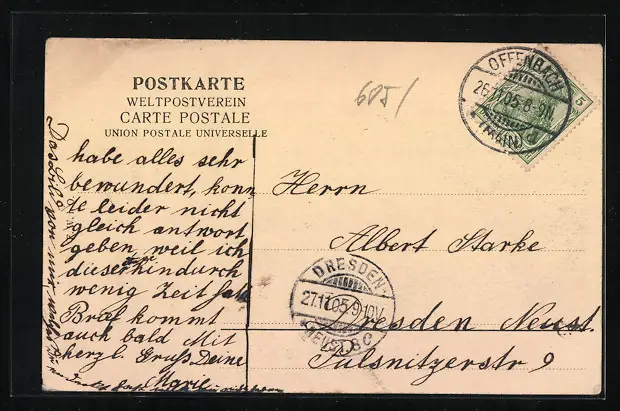 POSTKARTE
WELTPOSTVEREIN
CARTE POSTALE
UNION POSTALE UNIVERSELLE
habe alles sehr
bewundert, konn
te leider nicht
gleich antwort
geben, weil ich
diese hindurch
wenig Zeit
Brief kommt
auch bald Mit
herzl. Gruß Deine
Marie
Das Bild von mir
685/
OFFENBACH
26.11.05.8-9N.
(MAIN)
5
Herrn
Albert Starke
Dresden Neust.
Pulsnitzerstr 9
DRESDEN-
27.11.05.9-10V.
NEUST. 8 c